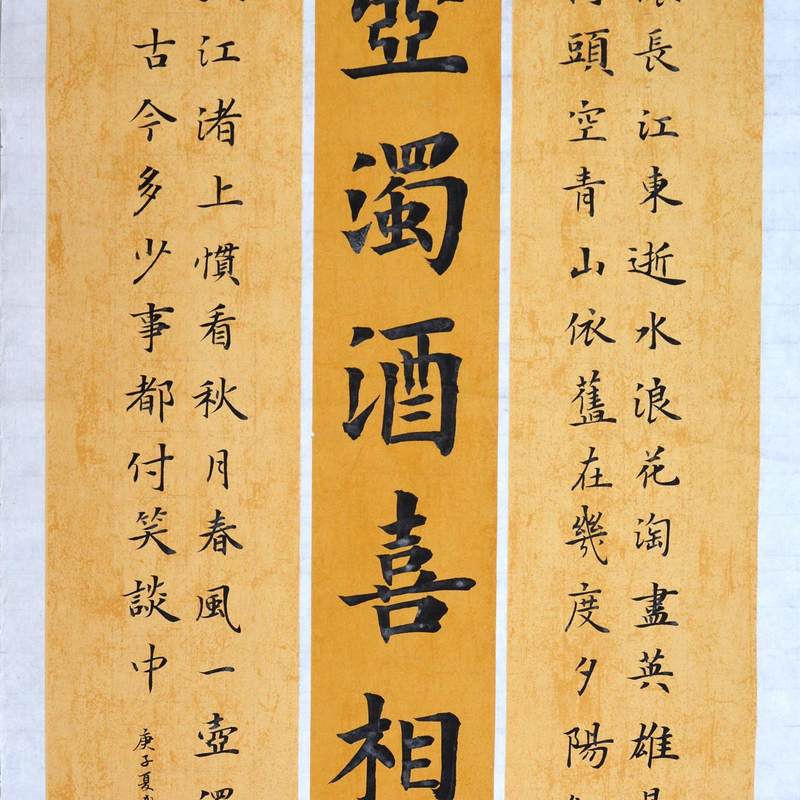 長江東逝水浪花淘盡英雄
頭空青山依舊在幾度夕陽
壺濁酒喜相
江渚上慣看秋月春風一壺濁
古今多少事都付笑談中
庚子夏